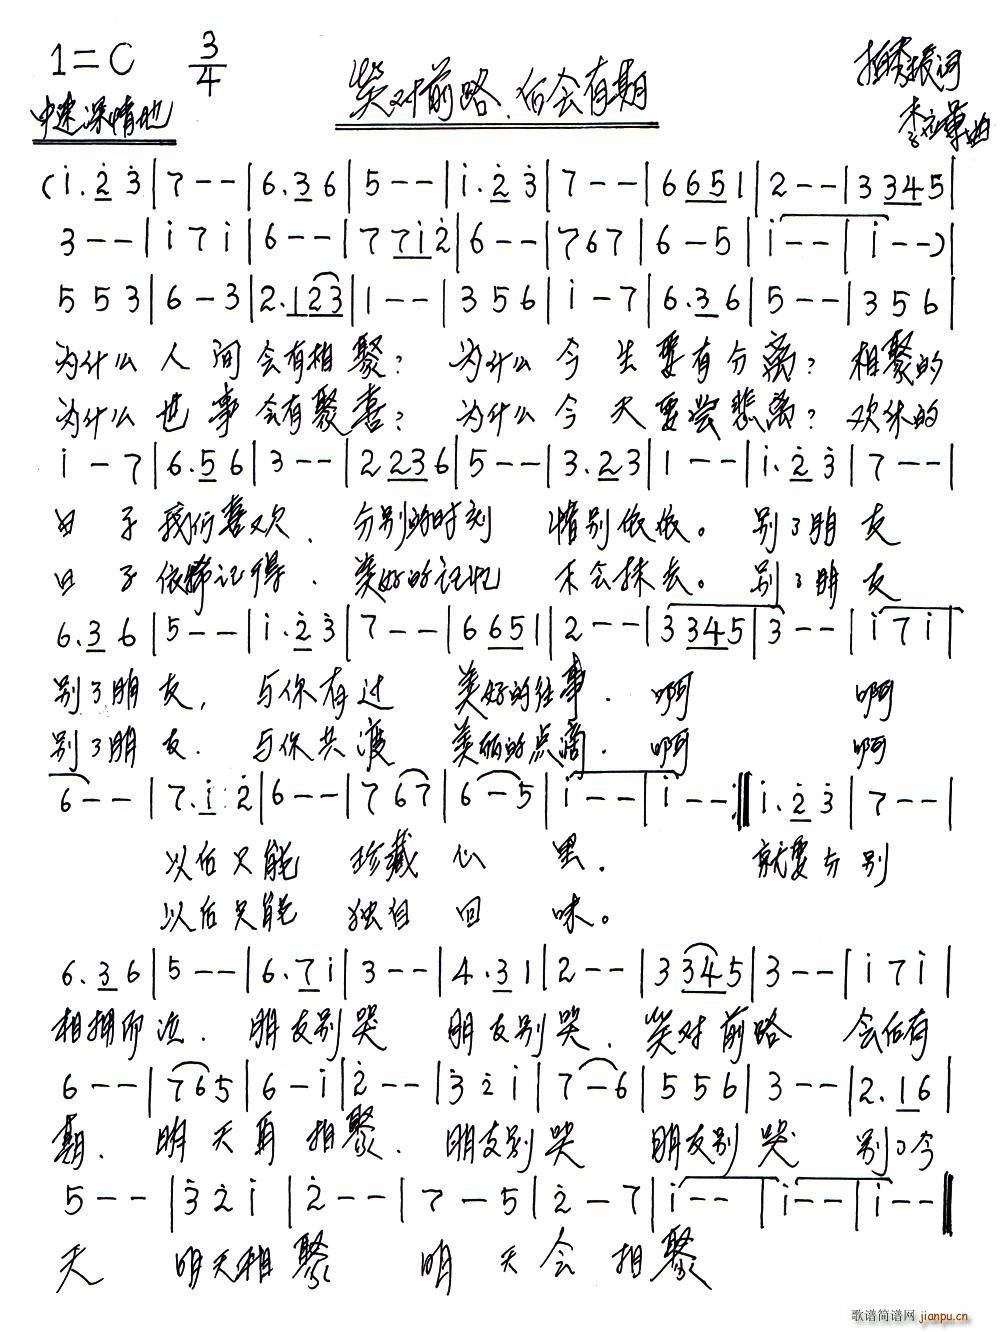 1=C 3/4
笑对前路、后会有期
中速 深情地
词
李 曲
(i.2̇ 3̇|7--|6.3 6|5--|i.2̇ 3̇|7--|6651|2--|3345|
3--|i7i|6--|77i2̇|6--|767|6-5|i--|i--)|
553|6-3|2.123|1--|356|i-7|6.36|5--|356|
为什么 人 间 会有相 聚? 为什么 今 生 要有分离? 相聚的
为什么 世 事 会有聚喜? 为什么 今 天 要尝悲离? 欢乐的
i-7|6.56|3--|2236|5--|3.23|1--|i.2̇3̇|7--|
日 子 我们喜欢、 分别的时刻 惜别依依。 别了朋 友
日 子 依稀记得、 美好的记忆 不会抹去。 别了朋 友
6.36|5--|i.2̇3̇|7--|6651|2--|3345|3--|i7i|
别了朋 友, 与你有过 美好的往事. 啊 啊
别了朋 友. 与你共渡 美丽的点滴. 啊 啊
6--|7.i2̇|6--|767|6-5|i--|i--:||i.2̇3̇|7--|
以后只能 珍藏 心 里. 就要分别
以后只能 独自 回 味。
6.36|5--|6.7i|3--|4.31|2--|3345|3--|i7i|
相拥而泣. 朋友别哭 朋友别哭. 笑对前路 会后有
6--|765|6-i|2̇--|3̇2̇i|7-6|556|3--|2.16|
期. 明天再 相聚. 朋友别哭 朋友别 哭 别了今
5--|3̇2̇i|2̇--|7-5|2̇-7|i--|i--|i--||
天 明天相聚 明 天会 相聚
歌谱简谱网 jianpu.cn